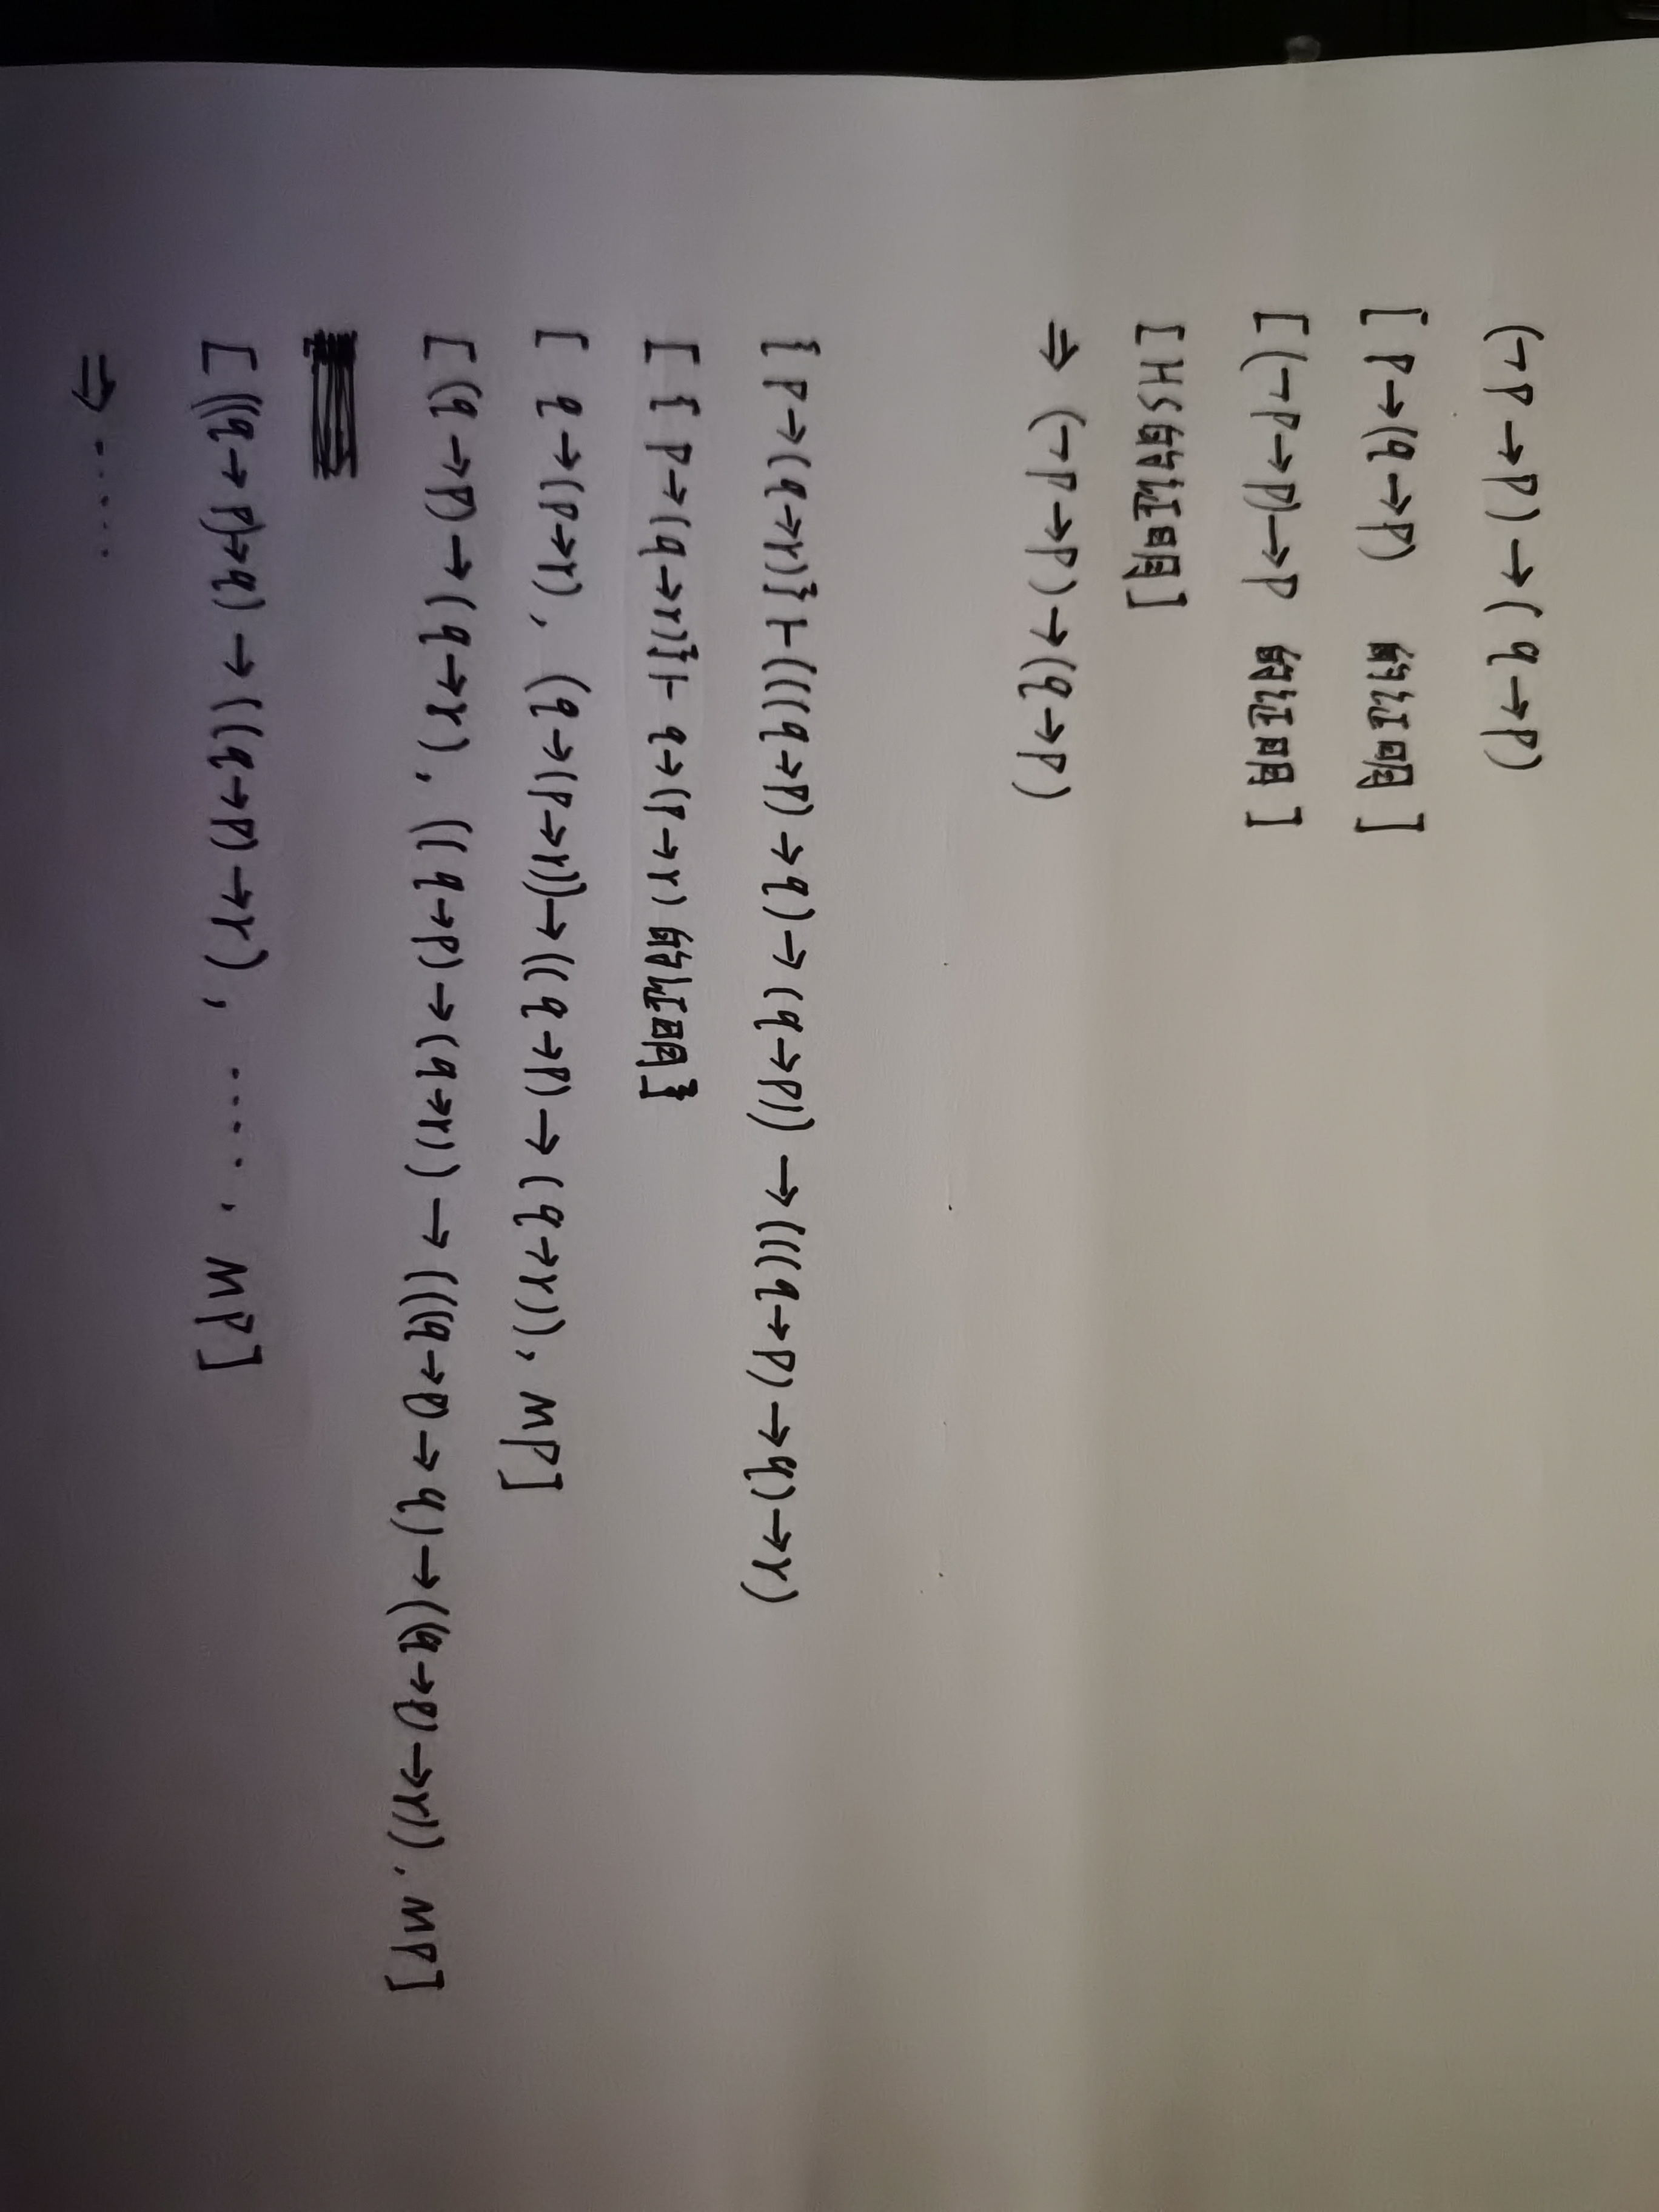 (¬P→P)→(q→P)
[P→(q→P) 的证明]
[(¬P→P)→P 的证明]
[HS的证明]
⇒ (¬P→P)→(q→P)
{P→(q→r)}⊢(((q→P)→q)→(q→P))→(((q→P)→q)→r)
[{P→(q→r)}⊢q→(P→r) 的证明]
[q→(P→r), (q→(P→r))→((q→P)→(q→r)), MP]
[(q→P)→(q→r), ((q→P)→(q→r))→(((q→P)→q)→((q→P)→r)), MP]
[((q→P)→q)→((q→P)→r), ....., MP]
⇒ .....